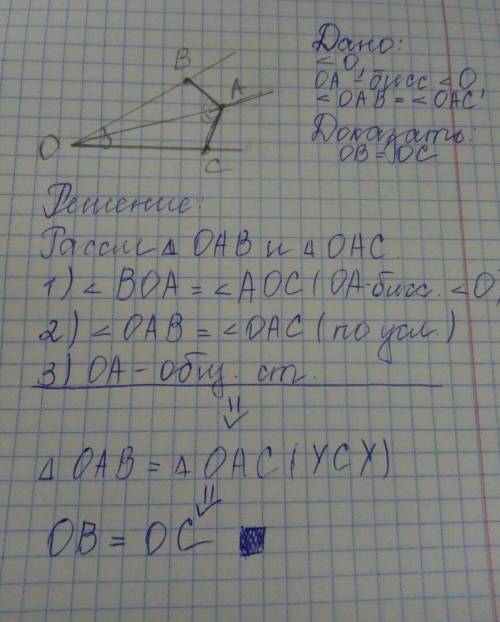 B
A
O
C
Дано:
< O,
OA - бисс < O
< OAB = < OAC,
Доказать:
OB = OC
Решение:
Рассм △ OAB и △ OAC.
1) < BOA = < AOC ( OA-бисс. < O
2) < OAB = < OAC ( по усл.)
3) OA - общ. ст.
⇓
△ OAB = △ OAC ( УСУ)
⇓
OB = OC